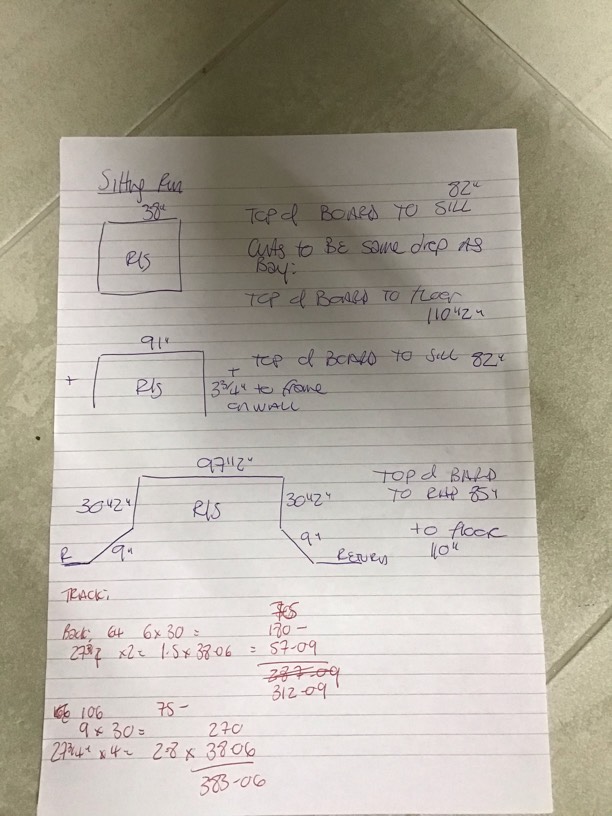 Sitting Rm
38"
R/S
82"
TOP of BOARD TO SILL
Curts to BE same drop AS
BAY:
TOP of BOARD TO floor
110"2"
91"
+
R/S
+
3 3/4" to frame
on WALL
TOP of BOARD TO SILL 82"
97"12"
30"2"
R/S
30"2"
9"
9"
R
RETURN
TOP of BOARD
TO RAD 85"
to floor
110"
TRACK:
Back: 64 6 x 30 =
180 -
x2 = 1.5 x 38.06 = 57-09
287-09
312-09
106 75-
9 x 30 = 270
27 3/4" x 4 = 2.8 x 3806
383-06